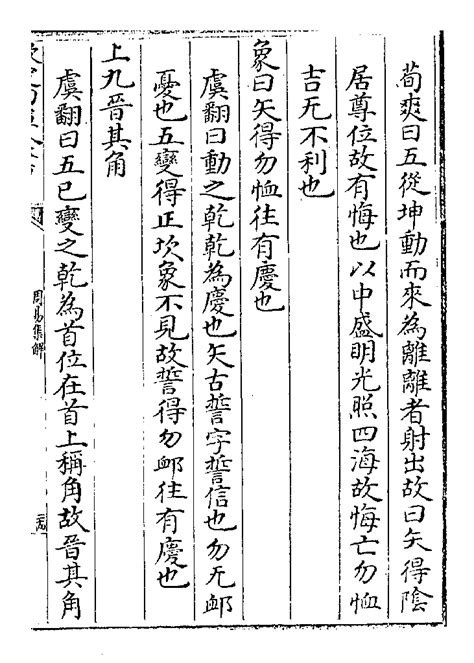 荀爽曰五從坤動而來為離離者射出故曰矢得陰
居尊位故有悔也以中盛明光照四海故悔亡勿恤
吉无不利也
象曰矢得勿恤往有慶也
虞翻曰動之乾乾為慶也矢古誓字誓信也勿无䘏
憂也五變得正坎象不見故誓得勿䘏往有慶也
上九晉其角
虞翻曰五已變之乾為首位在首上稱角故晉其角
周易集解